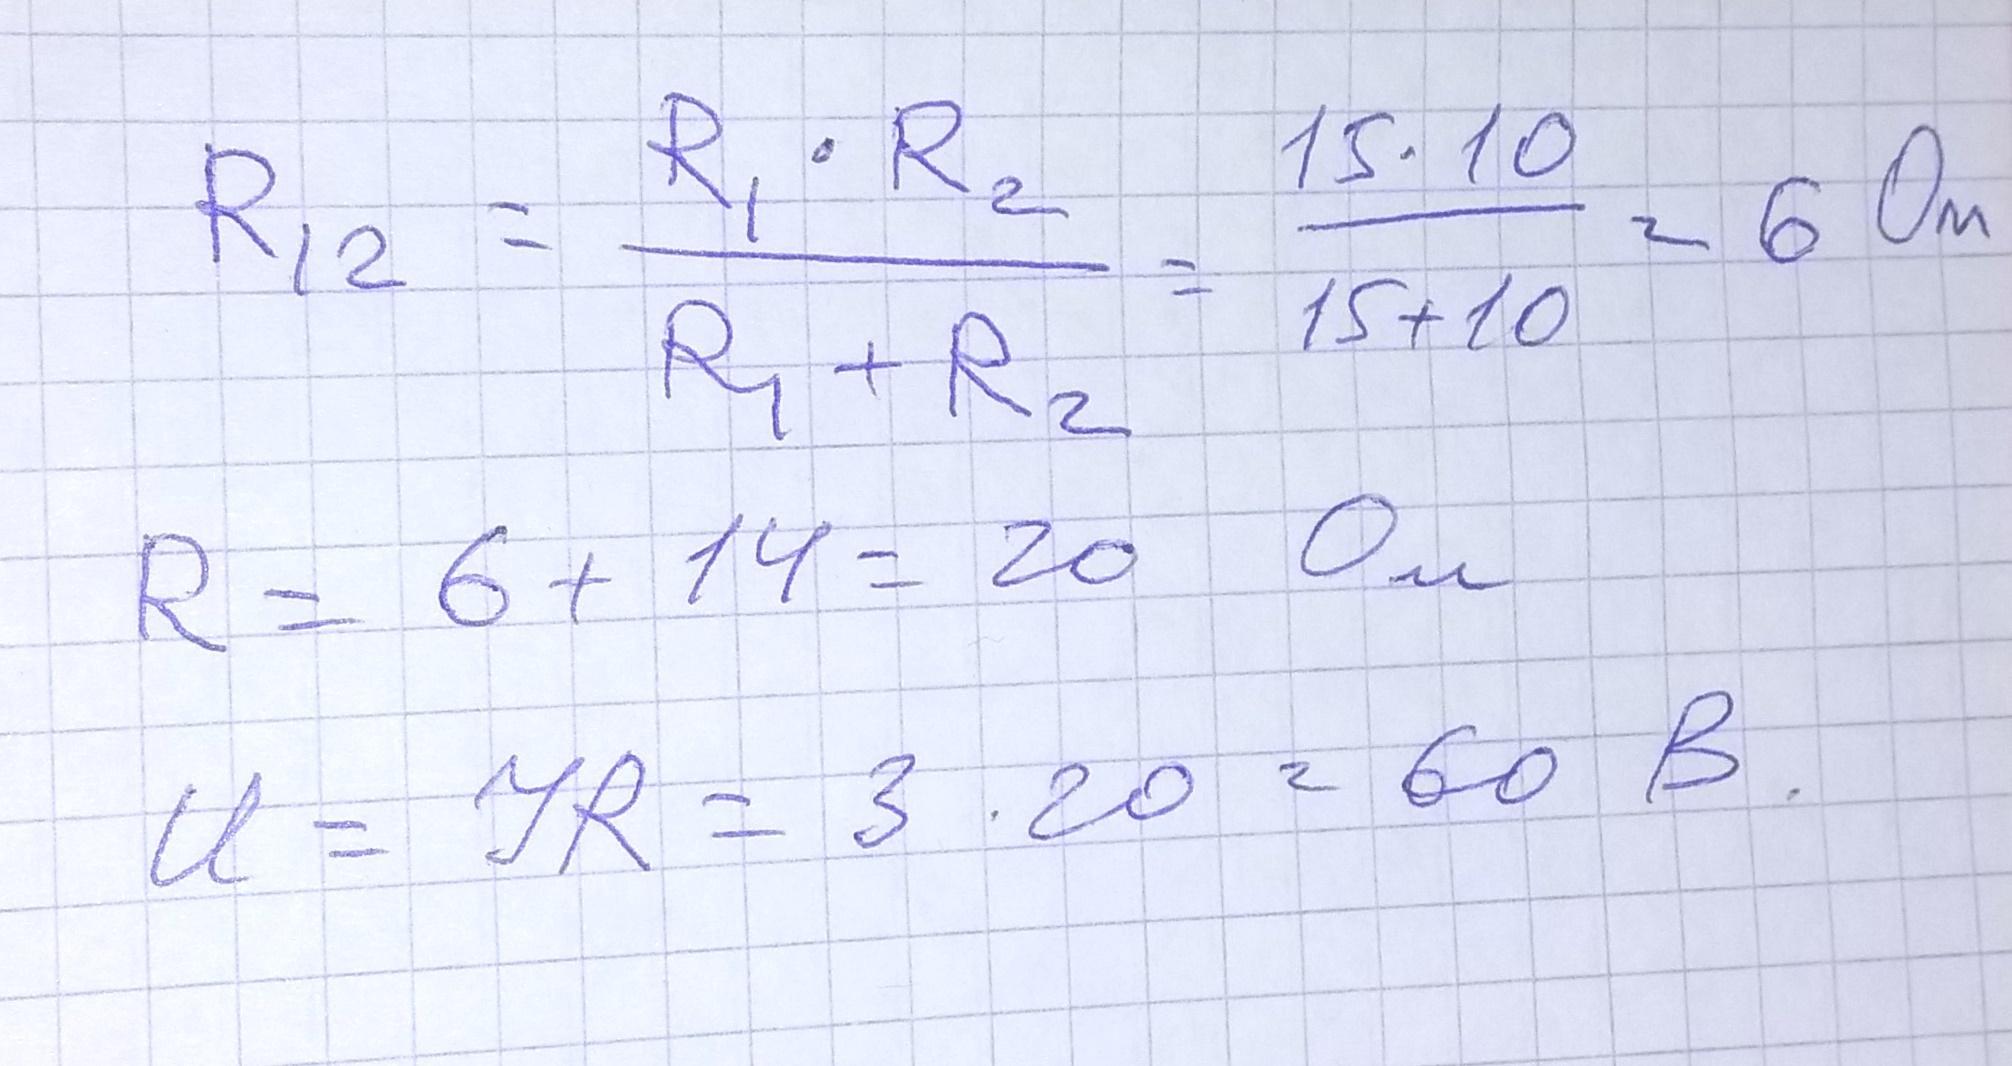 R₁₂ = (R₁ · R₂) / (R₁ + R₂) = (15 · 10) / (15 + 10) = 6 Ом
R = 6 + 14 = 20 Ом
U = IR = 3 · 20 = 60 В.